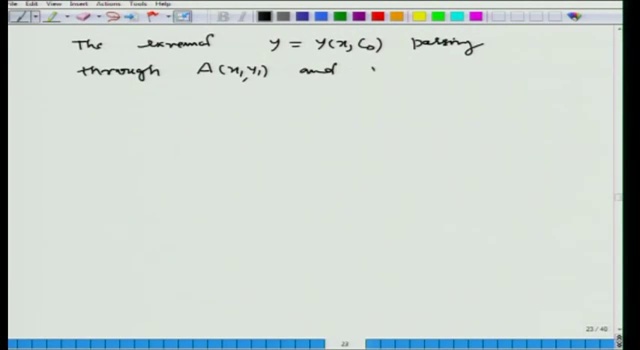 File Edit View Insert Actions Tools Help
The extremal y = y(x, C₀) passing
through A(x₁, y₁) and
23 / 40
23